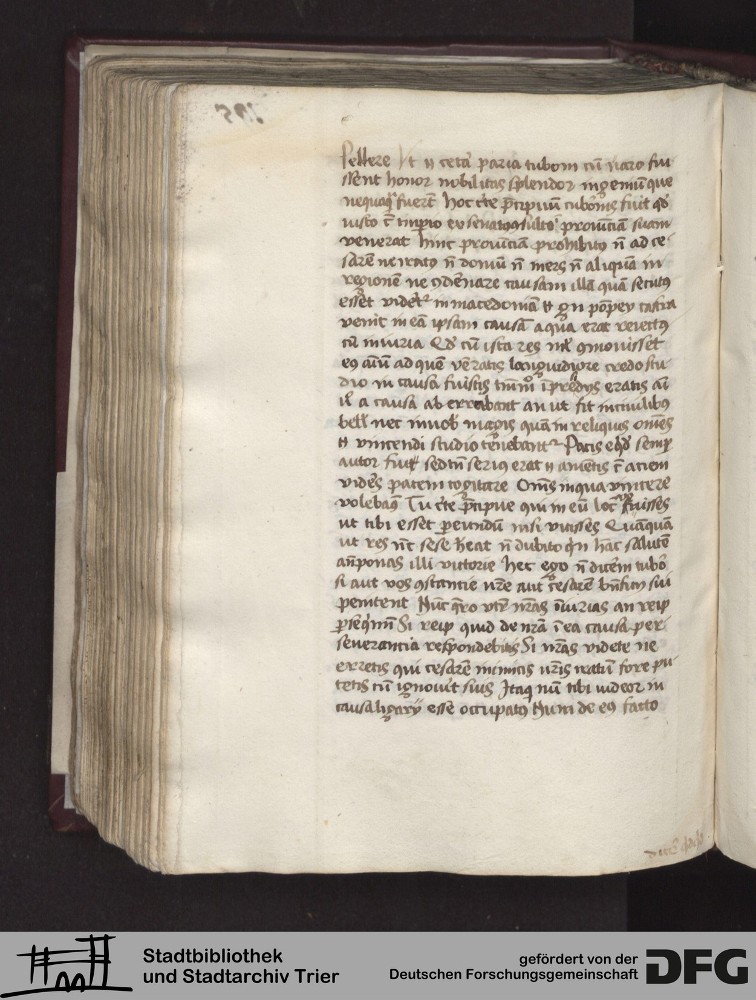 pellere Ut n̄ cetā paria tuboni cū̄ varo fui
ssent honor nobilitas splendor ingeniū que
nequaq̄ fuerūt hoc c̄te p̄cipuū tuboīs fuit qd̓
iusto c̄ imperio ex senatusconsulto prouīciā suam
venerat hinc prouīciā prohibitus n̄ ad ce
sarē ne iratus n̄ domū n̄ iners n̄ aliquā in
regionē ne ꝯdēnare causam illā quā secutus
esset videret̄ in macedoniā ⁊ gn̄ pōpey castra
venit in eā ipsam causā a qua erat reiectus
cū iniuria Qd̓ cū ista res nīl ꝯmouisset
eꝰ aīm ad quē vēratis languidiore credo stu
dio in causa fuistis tm̄mō ī presidiis eratis aī
īl a causa abhorrebant an ut fit in ciuilibus
bell̄ nec in uob̄ magis quā in reliquis om̄es
n̄ vincendi studio tenebant̄ Pacis eqd̓ semp̄
autor fui sed tn̄ serius erat n̄ amētis c̄ aciem
viderēs pacem cogitare Om̄s inqua vincere
volebaꝰ Tu c̄te p̄cipue qui in eū locū uenisses
ut tibi esset pereundū nisi vicisses Quāquā
ut res nc̄ sese heat n̄ dubito qn̄ hāc salutē
an̄ponas illi victorie hec ego n̄ dicērem tubō
si aut vos ꝯstantie vr̄e aut cesarē bn̄ficii sui
peniteret Nūc q̄ro vtr̄ vr̄as īiurias an reip̄
ꝑseqmī Si reip̄ quid de vr̄a ī ea causa per
seuerantia respondebitis Si vr̄as videte ne
erretis qui cesarē inimicis vr̄is iratū fore pu
tetis cū ignouit suis Itaq̄ nū tibi videor in
causa ligarii esse occupatus Num de eꝰ facto
Stadtbibliothek
und Stadtarchiv Trier
gefördert von der
Deutschen Forschungsgemeinschaft
DFG